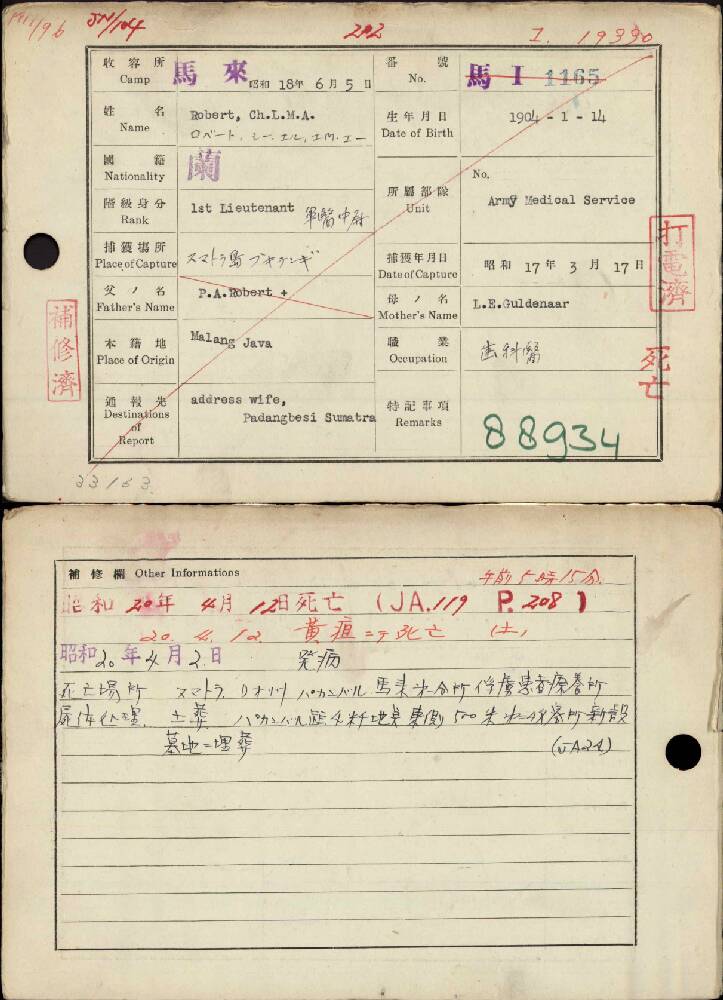 JN/104
202
I. 19330
收容所 Camp 馬來 昭和 18年 6月 5日
番號 No. 馬 I 1165
姓名 Name Robert, Ch.L.M.A.
ロベート, シー.エル.エム.エー
生年月日 Date of Birth 1904-1-14
國籍 Nationality 蘭
階級身分 Rank 1st Lieutenant 軍醫中尉
所屬部隊 Unit No. Army Medical Service
捕獲場所 Place of Capture スマトラ島
捕獲年月日 Date of Capture 昭和 17年 3月 17日
父ノ名 Father's Name P.A.Robert +
母ノ名 Mother's Name L.E.Guldenaar
本籍地 Place of Origin Malang Java
職業 Occupation 歯科醫
通報先 Destinations of Report address wife,
Padangbesi Sumatra
特記事項 Remarks 88934
補修濟
打電濟
死亡
33163
補修欄 Other Informations
午前5時15分
昭和20年4月12日死亡 (JA.119 P.208)
20. 4. 12. 黄疸ニテ死亡 (土)
昭和20年4月2日 発病
死亡場所 スマトラ リオ州 パカンバル 馬来 分所 俘虜患者療養所
屍体処理 土葬 パカンバル 東側 500米 分所新設
墓地ニ埋葬